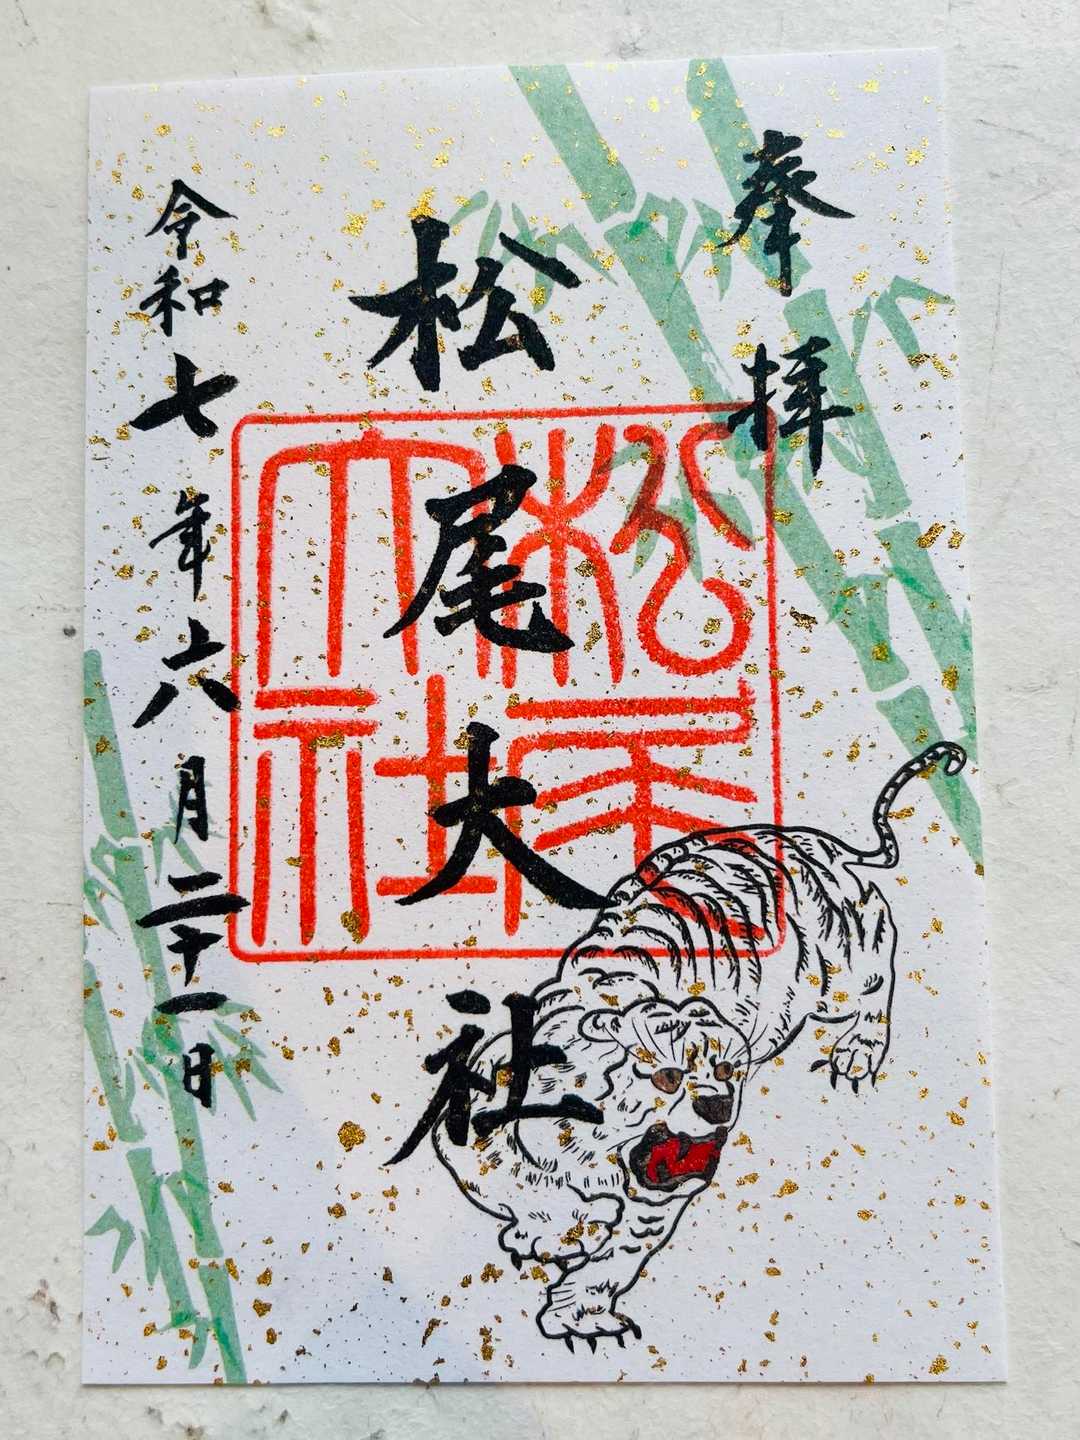 奉拝
松尾大社
松尾大社
令和七年六月二十一日